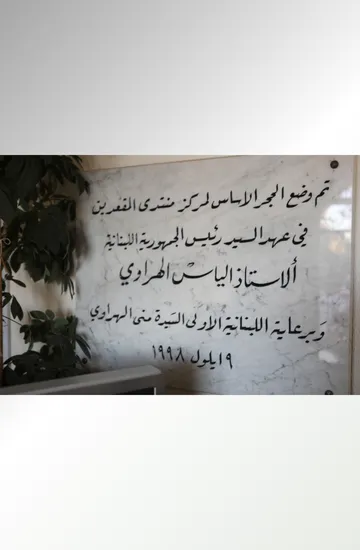 تم وضع الحجر الاساس لمركز منتدى المقعدين
في عهد السيد رئيس الجمهورية اللبنانية
الاستاذ الياس الهراوي
وبرعاية اللبنانية الاولى السيدة منى الهراوي
٩ ايلول ١٩٩٨